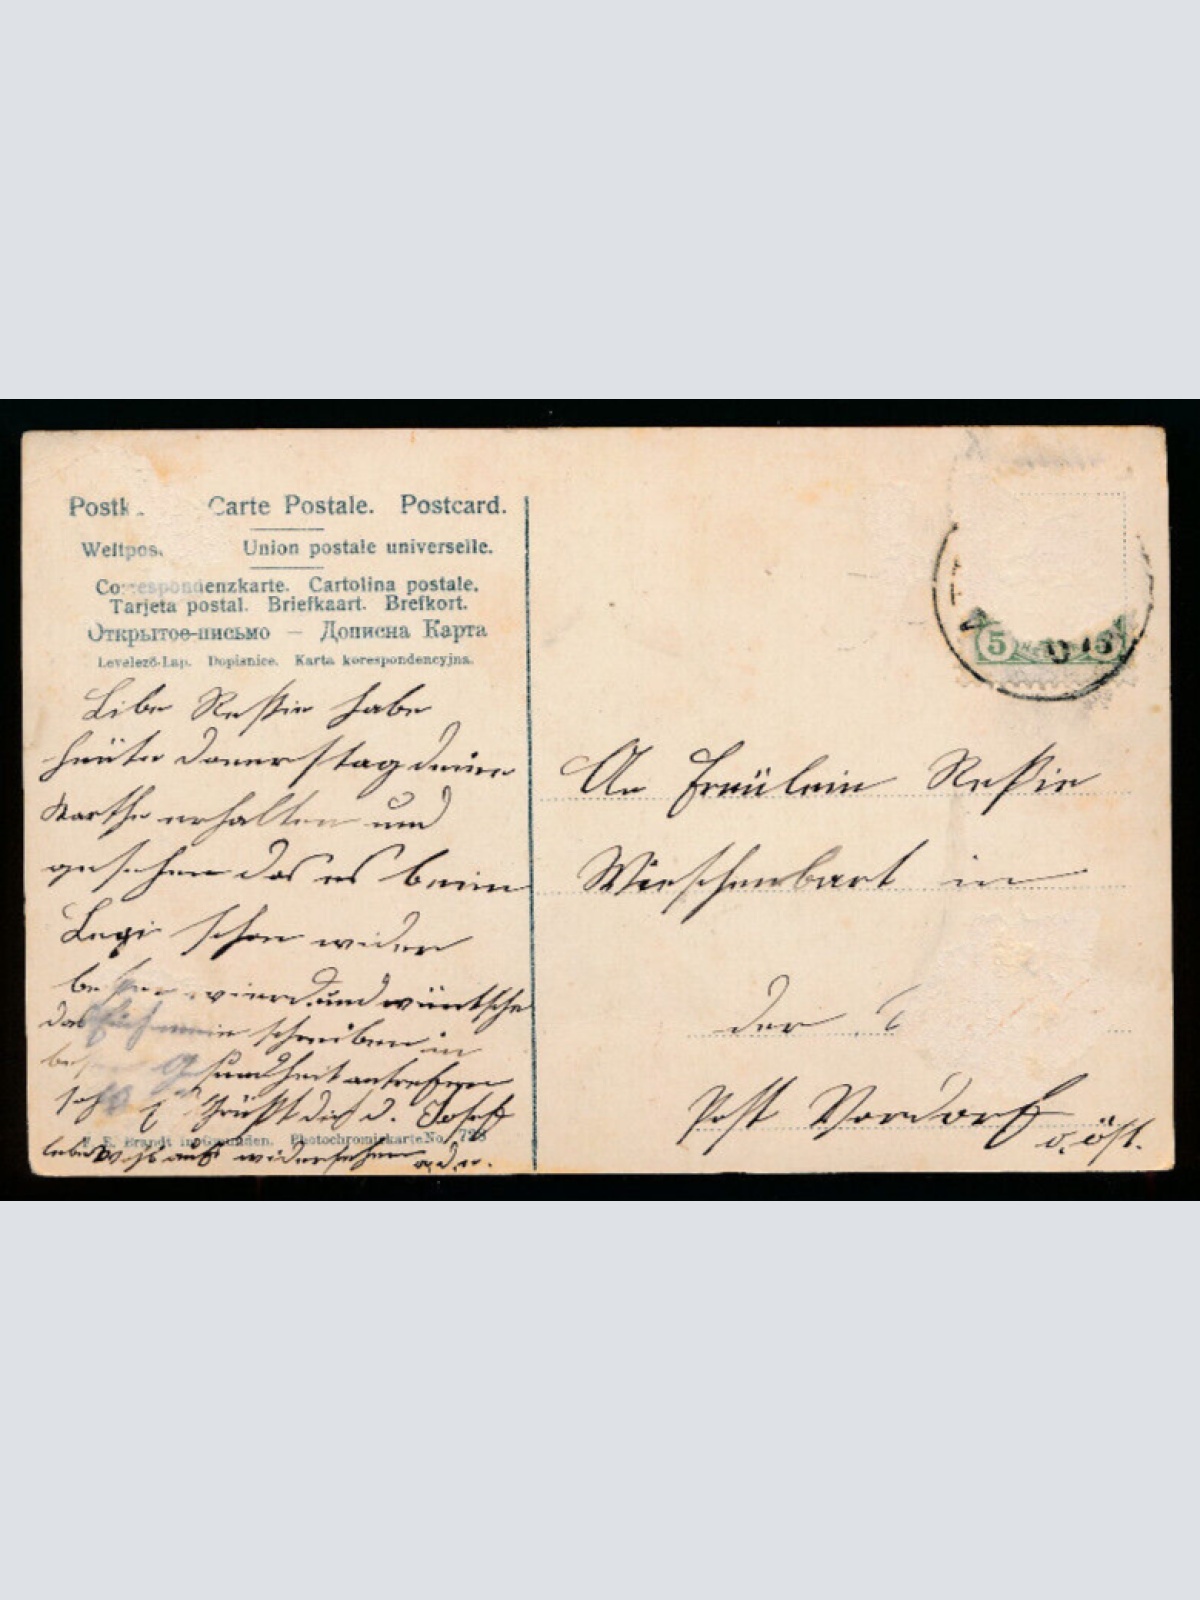 Postk Carte Postale. Postcard.
Weltpos. Union postale universelle.
Correspondenzkarte. Cartolina postale.
Tarjeta postal. Briefkaart. Brefkort.
Открытое-письмо — Дописна Карта
Levelező-Lap. Dopisnice. Karta korespondencyjna.
Libe Reßie habe
heute donerstag deine
Karthe erhalten und
gesehen das es beim
schon wider
wierd. und wüntsche
das schreiben in
sundheit antrefen
Grüßt dich d. Josef
auf widersehen
F. E. Brandt in Gmunden. Photochromiekarte No. 728
5 5
An Freülein Reßie
Wieschenbart in
der
Post Vordorf
o. öst.